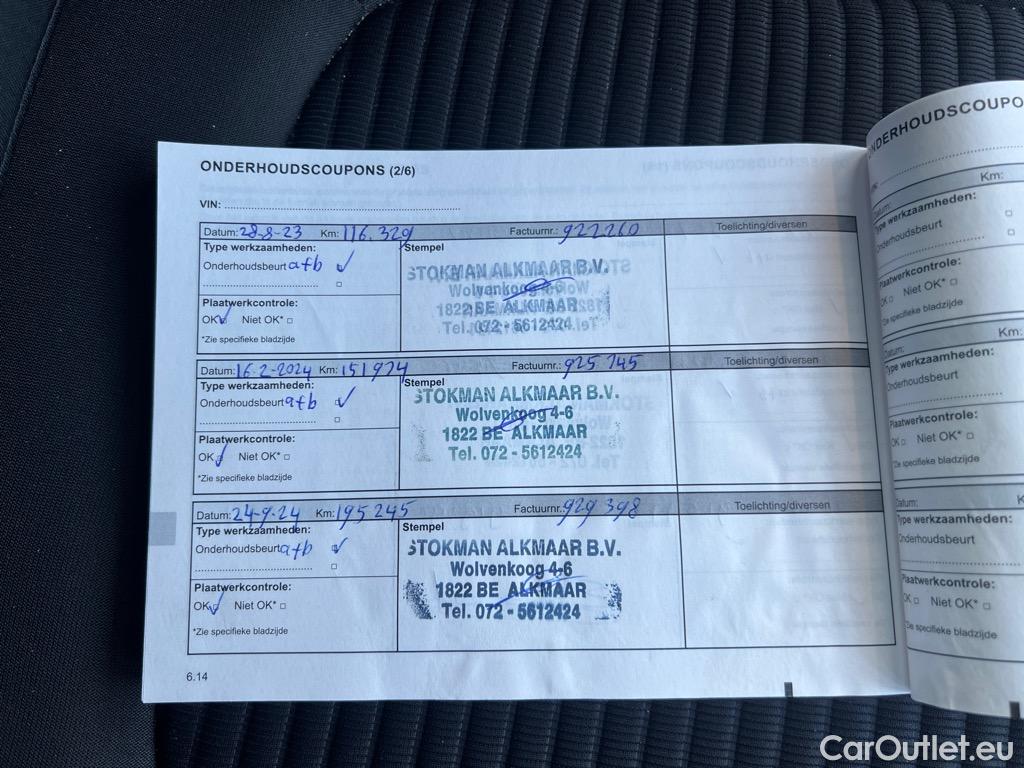 ONDERHOUDSCOUPONS (2/6)
VIN:
Datum: 28-8-23 Km: 116.329 Factuurnr.: 922260 Toelichting/diversen
Type werkzaamheden: Stempel
Onderhoudsbeurt a+b
STOKMAN ALKMAAR B.V.
Wolvenkoog 4-6
1822 BE ALKMAAR
Tel. 072 - 5612424
Plaatwerkcontrole:
OK Niet OK*
*Zie specifieke bladzijde
Datum: 16-2-2024 Km: 151974 Factuurnr.: 925745 Toelichting/diversen
Type werkzaamheden: Stempel
Onderhoudsbeurt a+b
STOKMAN ALKMAAR B.V.
Wolvenkoog 4-6
1822 BE ALKMAAR
Tel. 072 - 5612424
Plaatwerkcontrole:
OK Niet OK*
*Zie specifieke bladzijde
Datum: 24-9-24 Km: 195245 Factuurnr.: 929398 Toelichting/diversen
Type werkzaamheden: Stempel
Onderhoudsbeurt a+b
STOKMAN ALKMAAR B.V.
Wolvenkoog 4-6
1822 BE ALKMAAR
Tel. 072 - 5612424
Plaatwerkcontrole:
OK Niet OK*
*Zie specifieke bladzijde
6.14
ONDERHOUDSCOUPO
Km:
Type werkzaamheden:
Onderhoudsbeurt
Plaatwerkcontrole:
OK Niet OK*
*Zie specifieke bladzijde
Datum: Km:
Type werkzaamheden:
Onderhoudsbeurt
Plaatwerkcontrole:
OK Niet OK*
*Zie specifieke bladzijde
Datum: K
Type werkzaamheden:
Onderhoudsbeurt
Plaatwerkcontrole:
OK Niet OK*
*Zie specifieke bladzijde
CarOutlet.eu